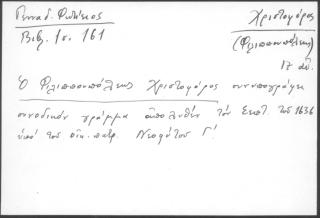 Γενναδ. Φωτιάδος
Βιβλ. Ισ. 161
Χριστοφόρος
(Φιλιππουπόλεως)
17 αἰ.
Ὁ Φιλιππουπόλεως Χριστοφόρος συνυπογράφει
συνοδικὸν γράμμα ἀπολυθὲν τὸν Σεπτ. τοῦ 1636
ὑπὸ τοῦ οἰκ. πατρ. Νεοφύτου Γ'.